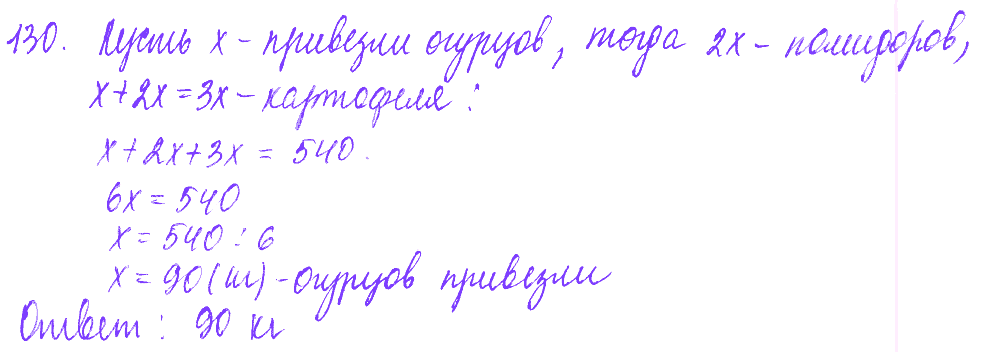 130. Пусть x - привезли огурцов, тогда 2x - помидоров,
x+2x=3x - картофеля :
x+2x+3x = 540.
6x = 540
x = 540 : 6
x = 90 (кг) - огурцов привезли
Ответ : 90 кг